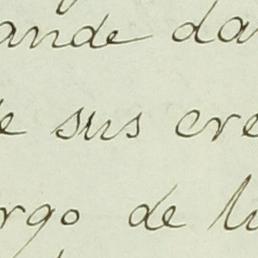 ande da
e sus cre
rgo de l